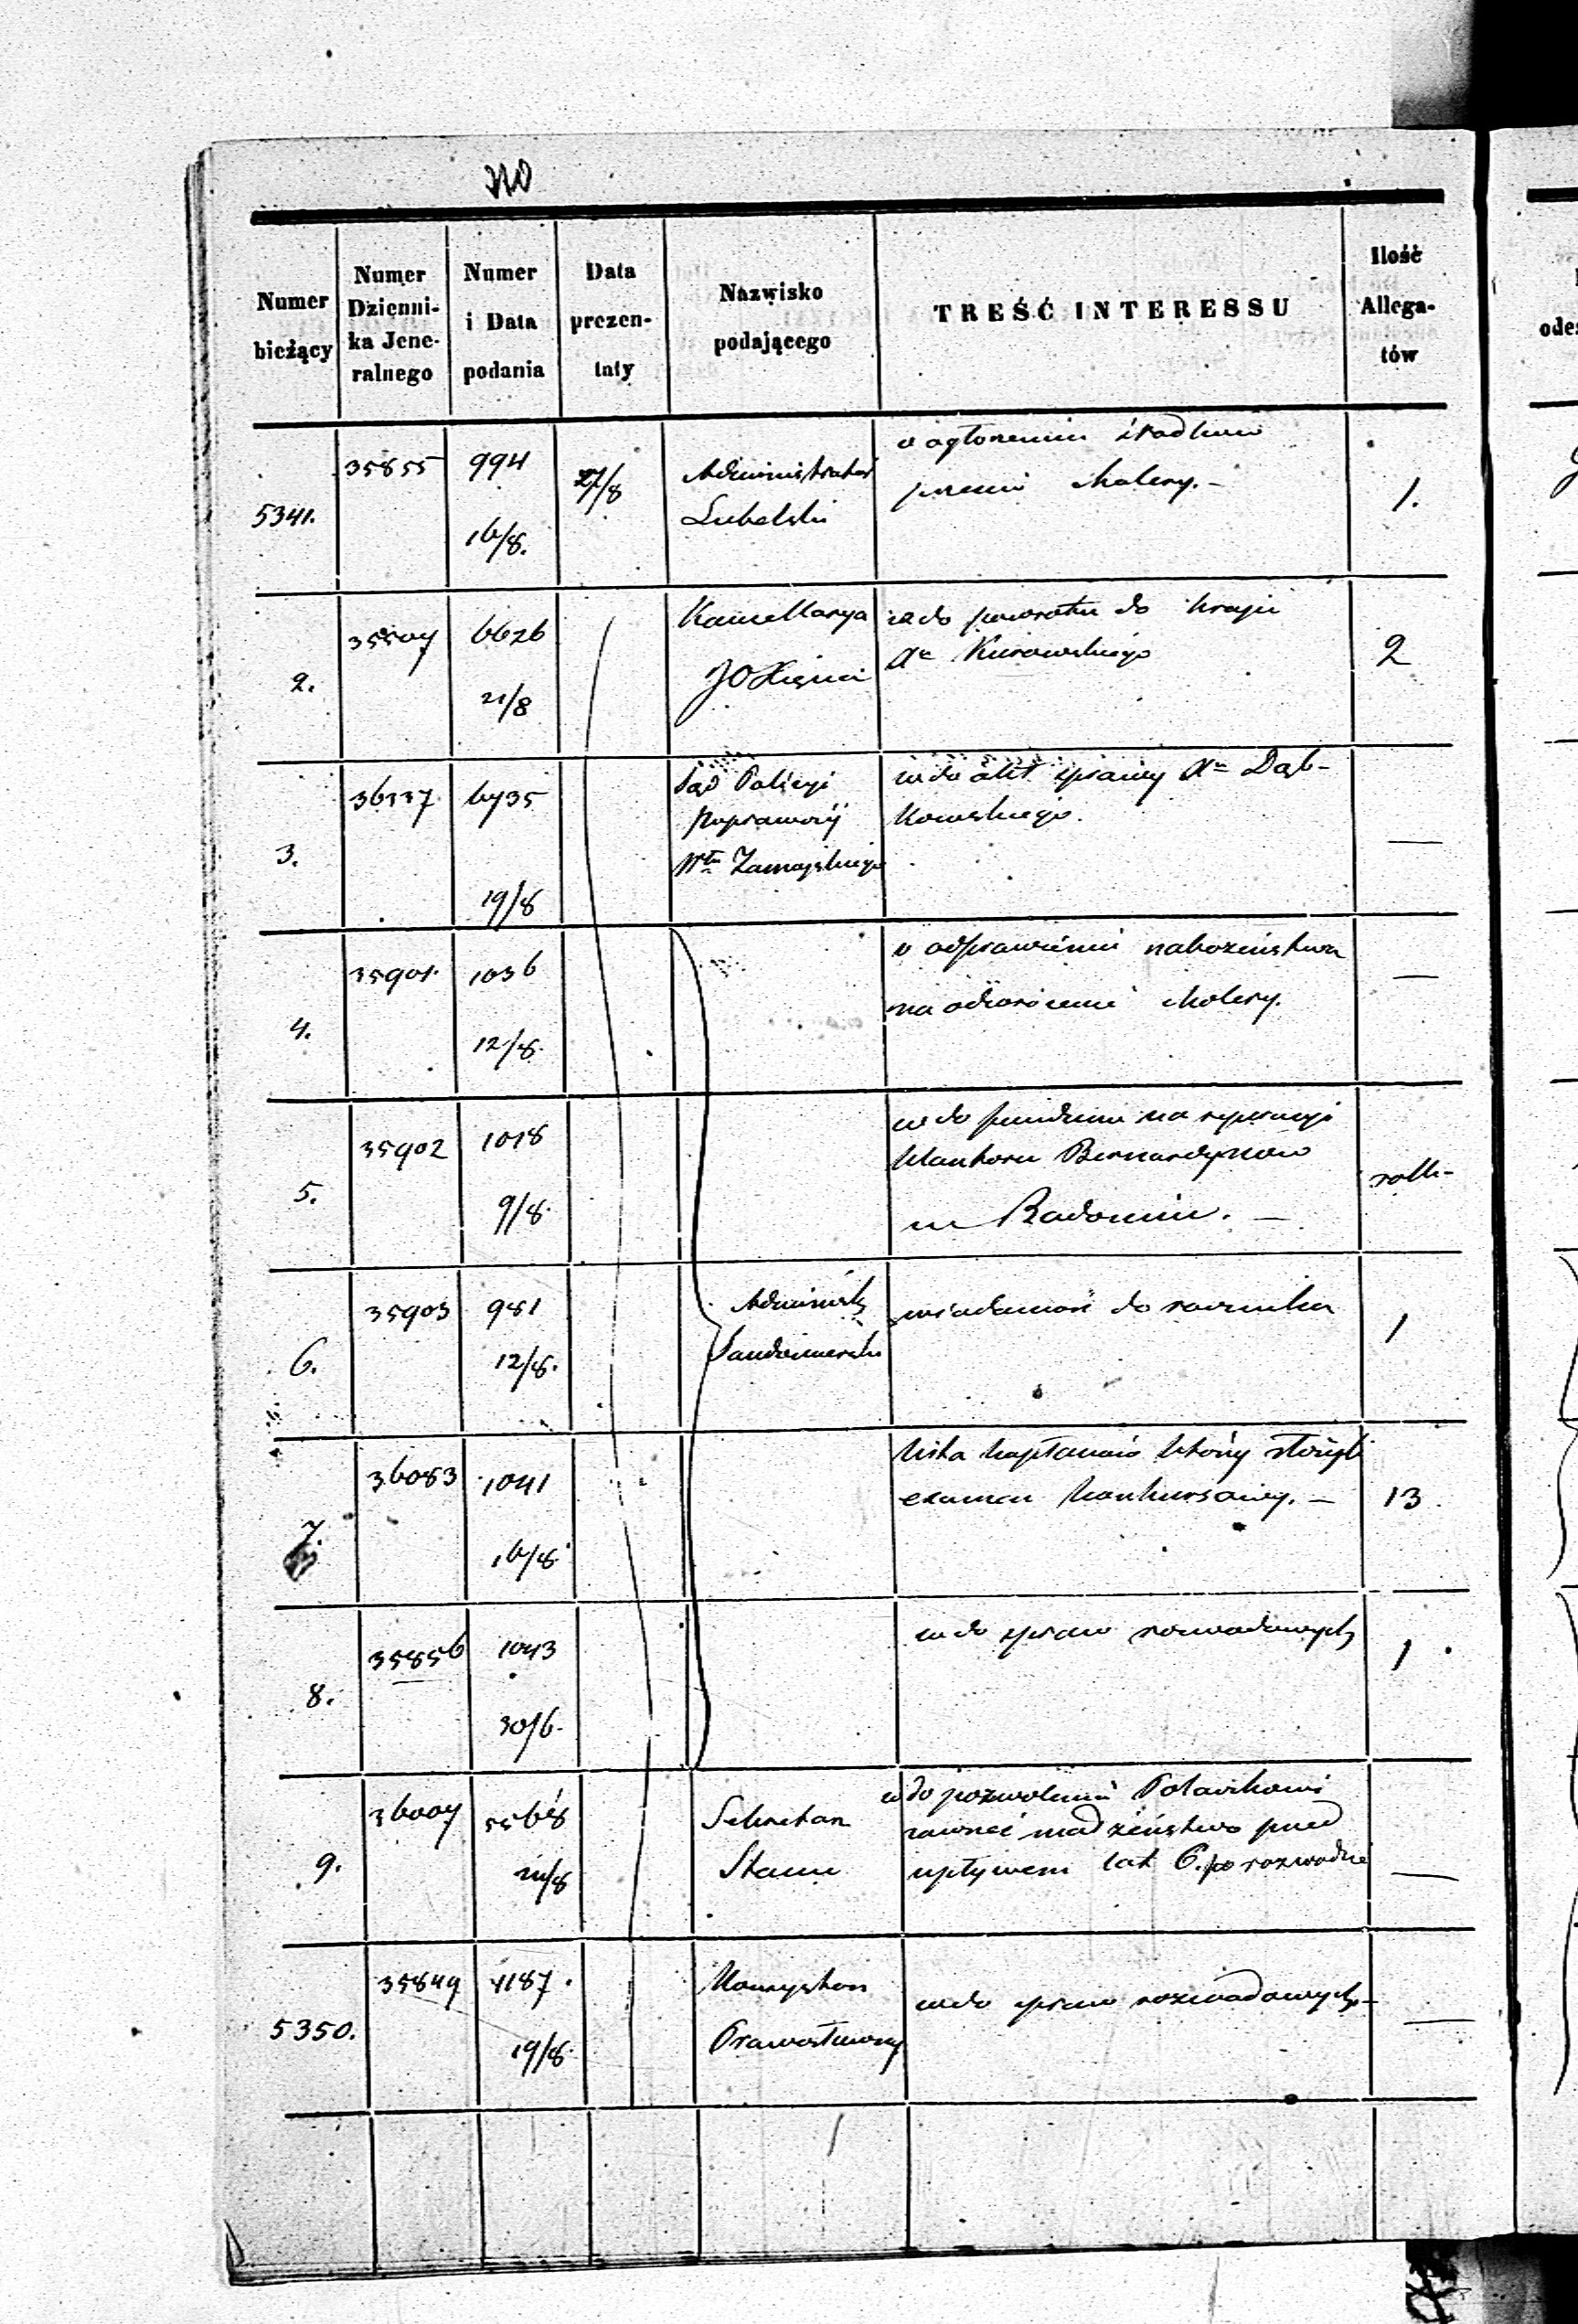 Numer bieżący
Numer Dzienni-
ka Jene-
ralnego
Numer
i Data
podania
Data
prezen-
taty
Nazwisko
podającego
TREŚĆ INTERESSU
Ilość
Allega-
tów
5341.
35855
994
16/8.
27/8
Administrator
Lubelski
o ogłoszeniu środków
przeciw cholery.-
1.
2.
35507
6626
21/8
Kancellarya
JO Xięcia
wdo powrotu do kraju
Xa Kurowskiego
2
3.
36137
6735
19/8
Sąd Policyi
Poprawczéj
Włu Zamojskiego
wdo akt sprawy Xa Dąb-
kowskiego.
—
4.
35901.
1036
12/8.
o odprawieniu nabożeństwa
na odwrócenie cholery.
—
5.
35902
1018
9/8.
wdo funduszu na reperacyi
klasztoru Bernardynów
w Radomiu. —
6.
35903
981
12/8.
Administr
Sandomierski
wiadomość do rocznika
1
7.
36083
1041
16/8
lista kapłanów którzy złożyli
examen konkursowy. —
13
8.
35856
1043
30/6.
wdo spraw rozwodowych
1
9.
36007
5568
/8
Sekretarz
Stanu
wdo pozwolenia
zawrzeć małżeństwo przed
upływem lat 6. po rozwodzie
—
5350.
35849
4187.
19/8.
Konsystorz
Prawosławny
wdo spraw rozwodowych.-
—